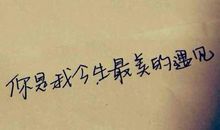 你是我今生最美的遇见